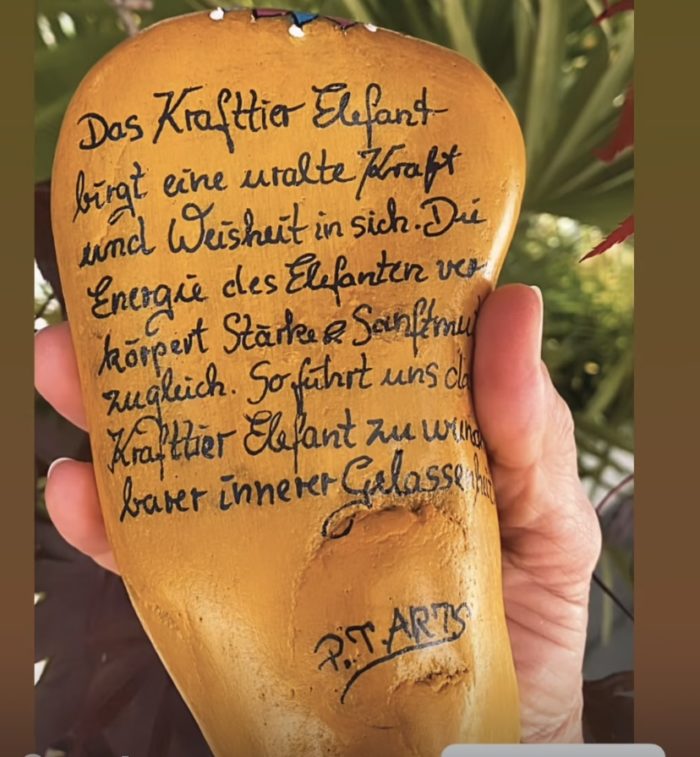 Das Krafttier Elefant
birgt eine uralte Kraft
und Weisheit in sich. Die
Energie des Elefanten ver
körpert Stärke & Sanftmu
zugleich. So führt uns da
Krafttier Elefant zu wund
barer innerer Gelassenheit
P.T.ARTS